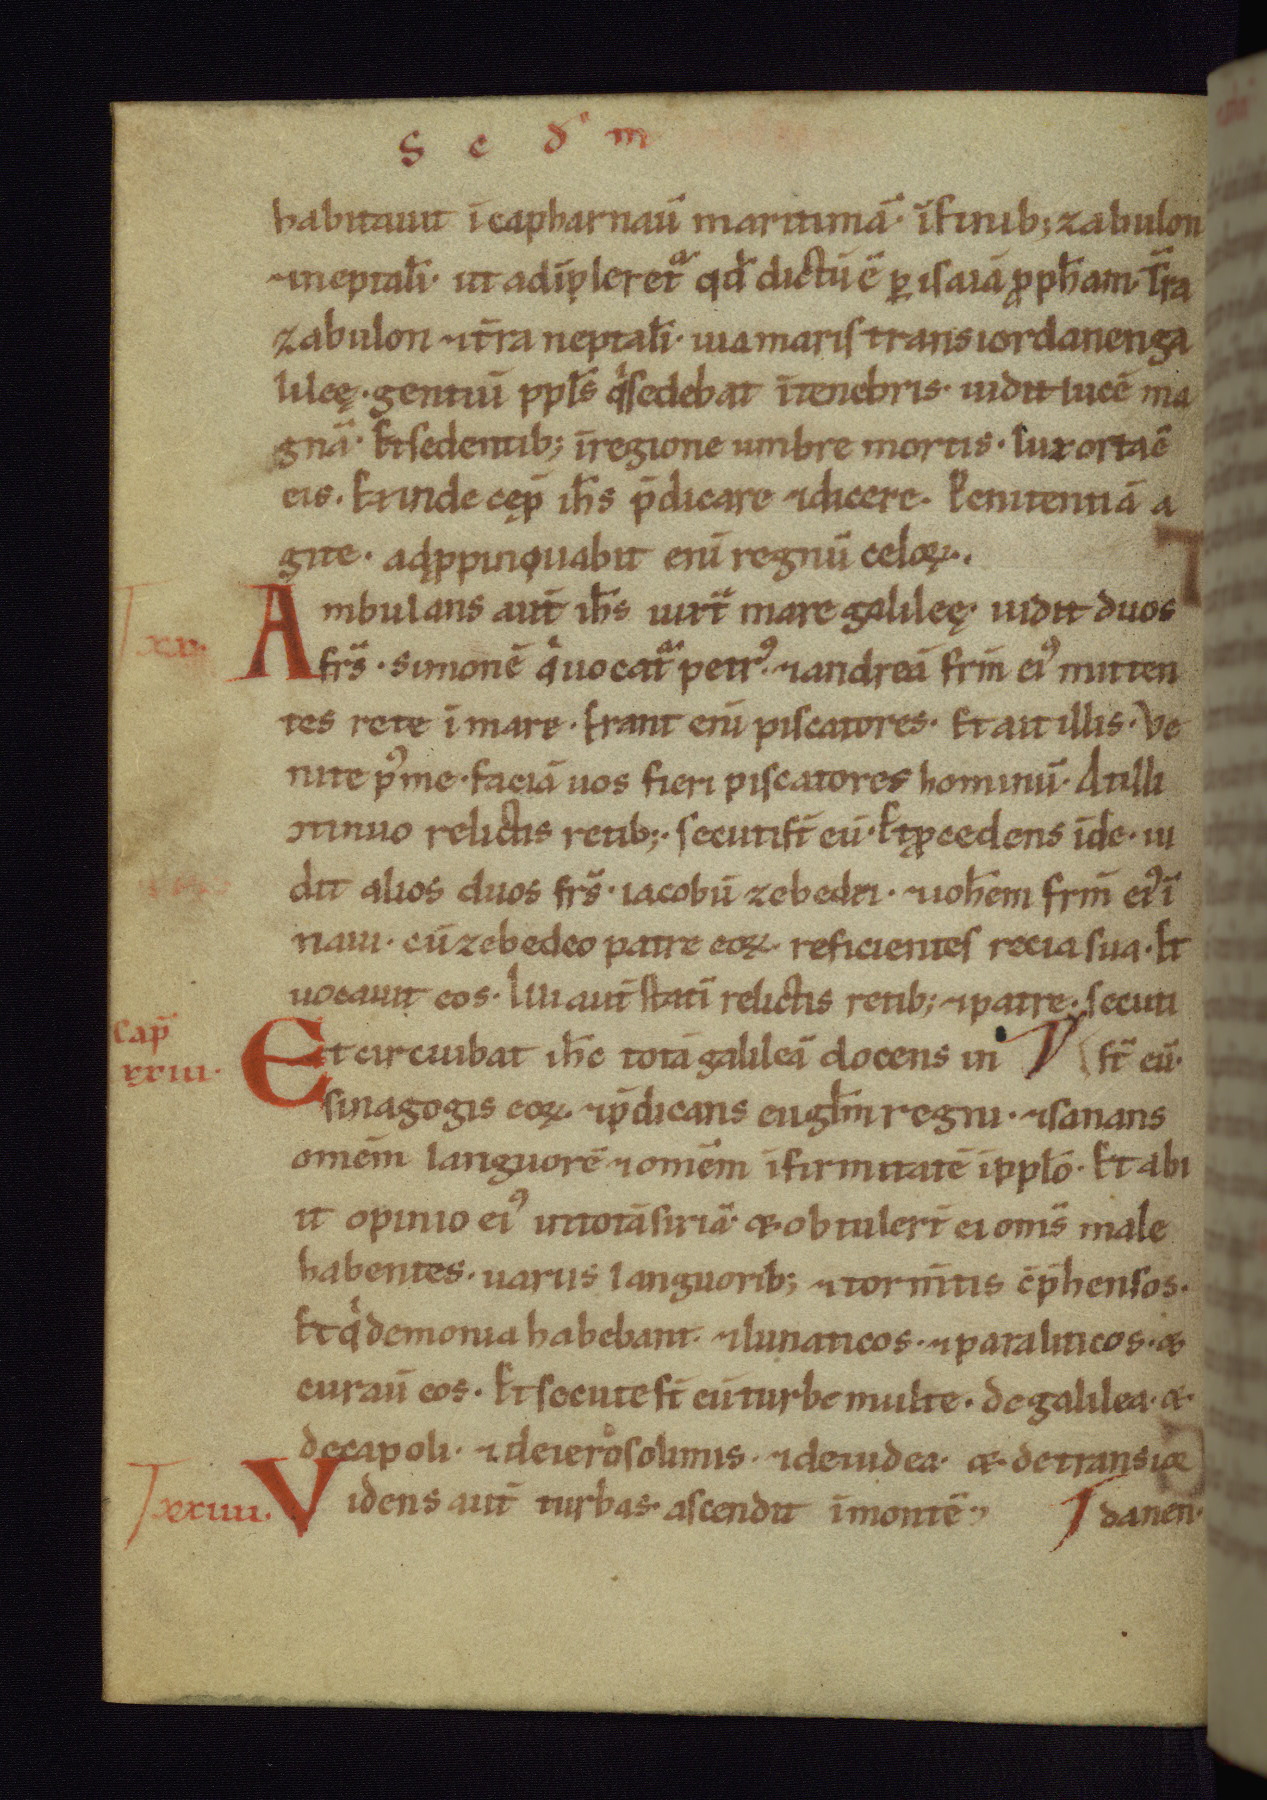 S c d' m
habitauit ī capharnaū maritimā· ī finib; zabulon
⁊ineptali· ut adīpleret᷑ qd̄ dictū ē ꝑ isaiā ꝓph̄am· Tr̄a
zabulon ⁊ tr̄a neptali· uia maris trans iordanen ga
lileę· gentiū ppl̄s qͥ sedebat ī tenebris· uidit lucē ma
gnā· Et sedentib; ī regione umbre mortis· lux orta ē
eis. Et inde cęp̄ ih̄s p̄dicare ⁊ dicere· Penitentiā a
gite· adppinquabit enī regnū celoꝝ.
xx·
Ambulans aut̄ ih̄s iuxt̄ mare galileę· uidit duos
fr̄s· simonē qͥ uocat᷑ petrꝰ· ⁊ andreā frm̄ eiꝰ mitten
tes rete ī mare· Erant enī piscatores· Et ait illis· Ve
nite pꝰ me· faciā uos fieri piscatores hominū· At illi
ↄtinuo relictis retib;· secuti st̄ eū· Et ꝓcedens īde· ui
dit alios duos fr̄s· iacobū zebedei· ⁊ ioh̄em frm̄ eiꝰ ī
naui· cū zebedeo patre eoꝝ· reficientes recia sua· Et
uocauit eos· Illi aut̄ statī relictis retib; ⁊ patre· secuti
st̄ eū·
cap̄ xxiii·
Et circuibat ih̄c totā galileā docens in
sinagogis eoꝝ· ⁊ p̄dicans eugl̄m regni· ⁊ sanans
omēm languorē ⁊ omēm īfirmitatē ī ppl̄o· Et abi
it opinio eiꝰ in totā siriā· & obtuler̄t ei om̄s male
habentes· uariis languorib; ⁊ torm̄tis c̄p̄hensos·
Et qͥ demonia habebant· ⁊ lunaticos· ⁊ paraliticos· &
curaū eos· Et secute st̄ eū turbe multe· de galilea· &
decapoli· ⁊ de ierosolimis· ⁊ de iudea· & de trans ior
danen·
xxiiii·
Videns aut̄ turbas· ascendit ī montē·